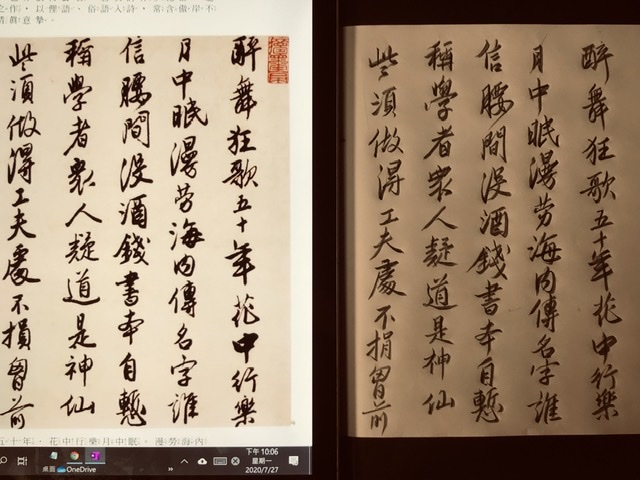 之作，以俚語、俗語入詩，常含傲岸不
情真意摯。
醉舞狂歌五十年花中行樂
月中眠漫勞海內傳名字誰
信腰間沒酒錢書本自慙
稱學者眾人疑道是神仙
些須做得工夫處不損胷前
五十年，花中行樂月中眠。漫勞海內
桌面 OneDrive
下午 10:06
星期一
2020/7/27
醉舞狂歌五十年花中行樂
月中眠漫勞海內傳名字誰
信腰間沒酒錢書本自慙
稱學者眾人疑道是神仙
些須做得工夫處不損胷前